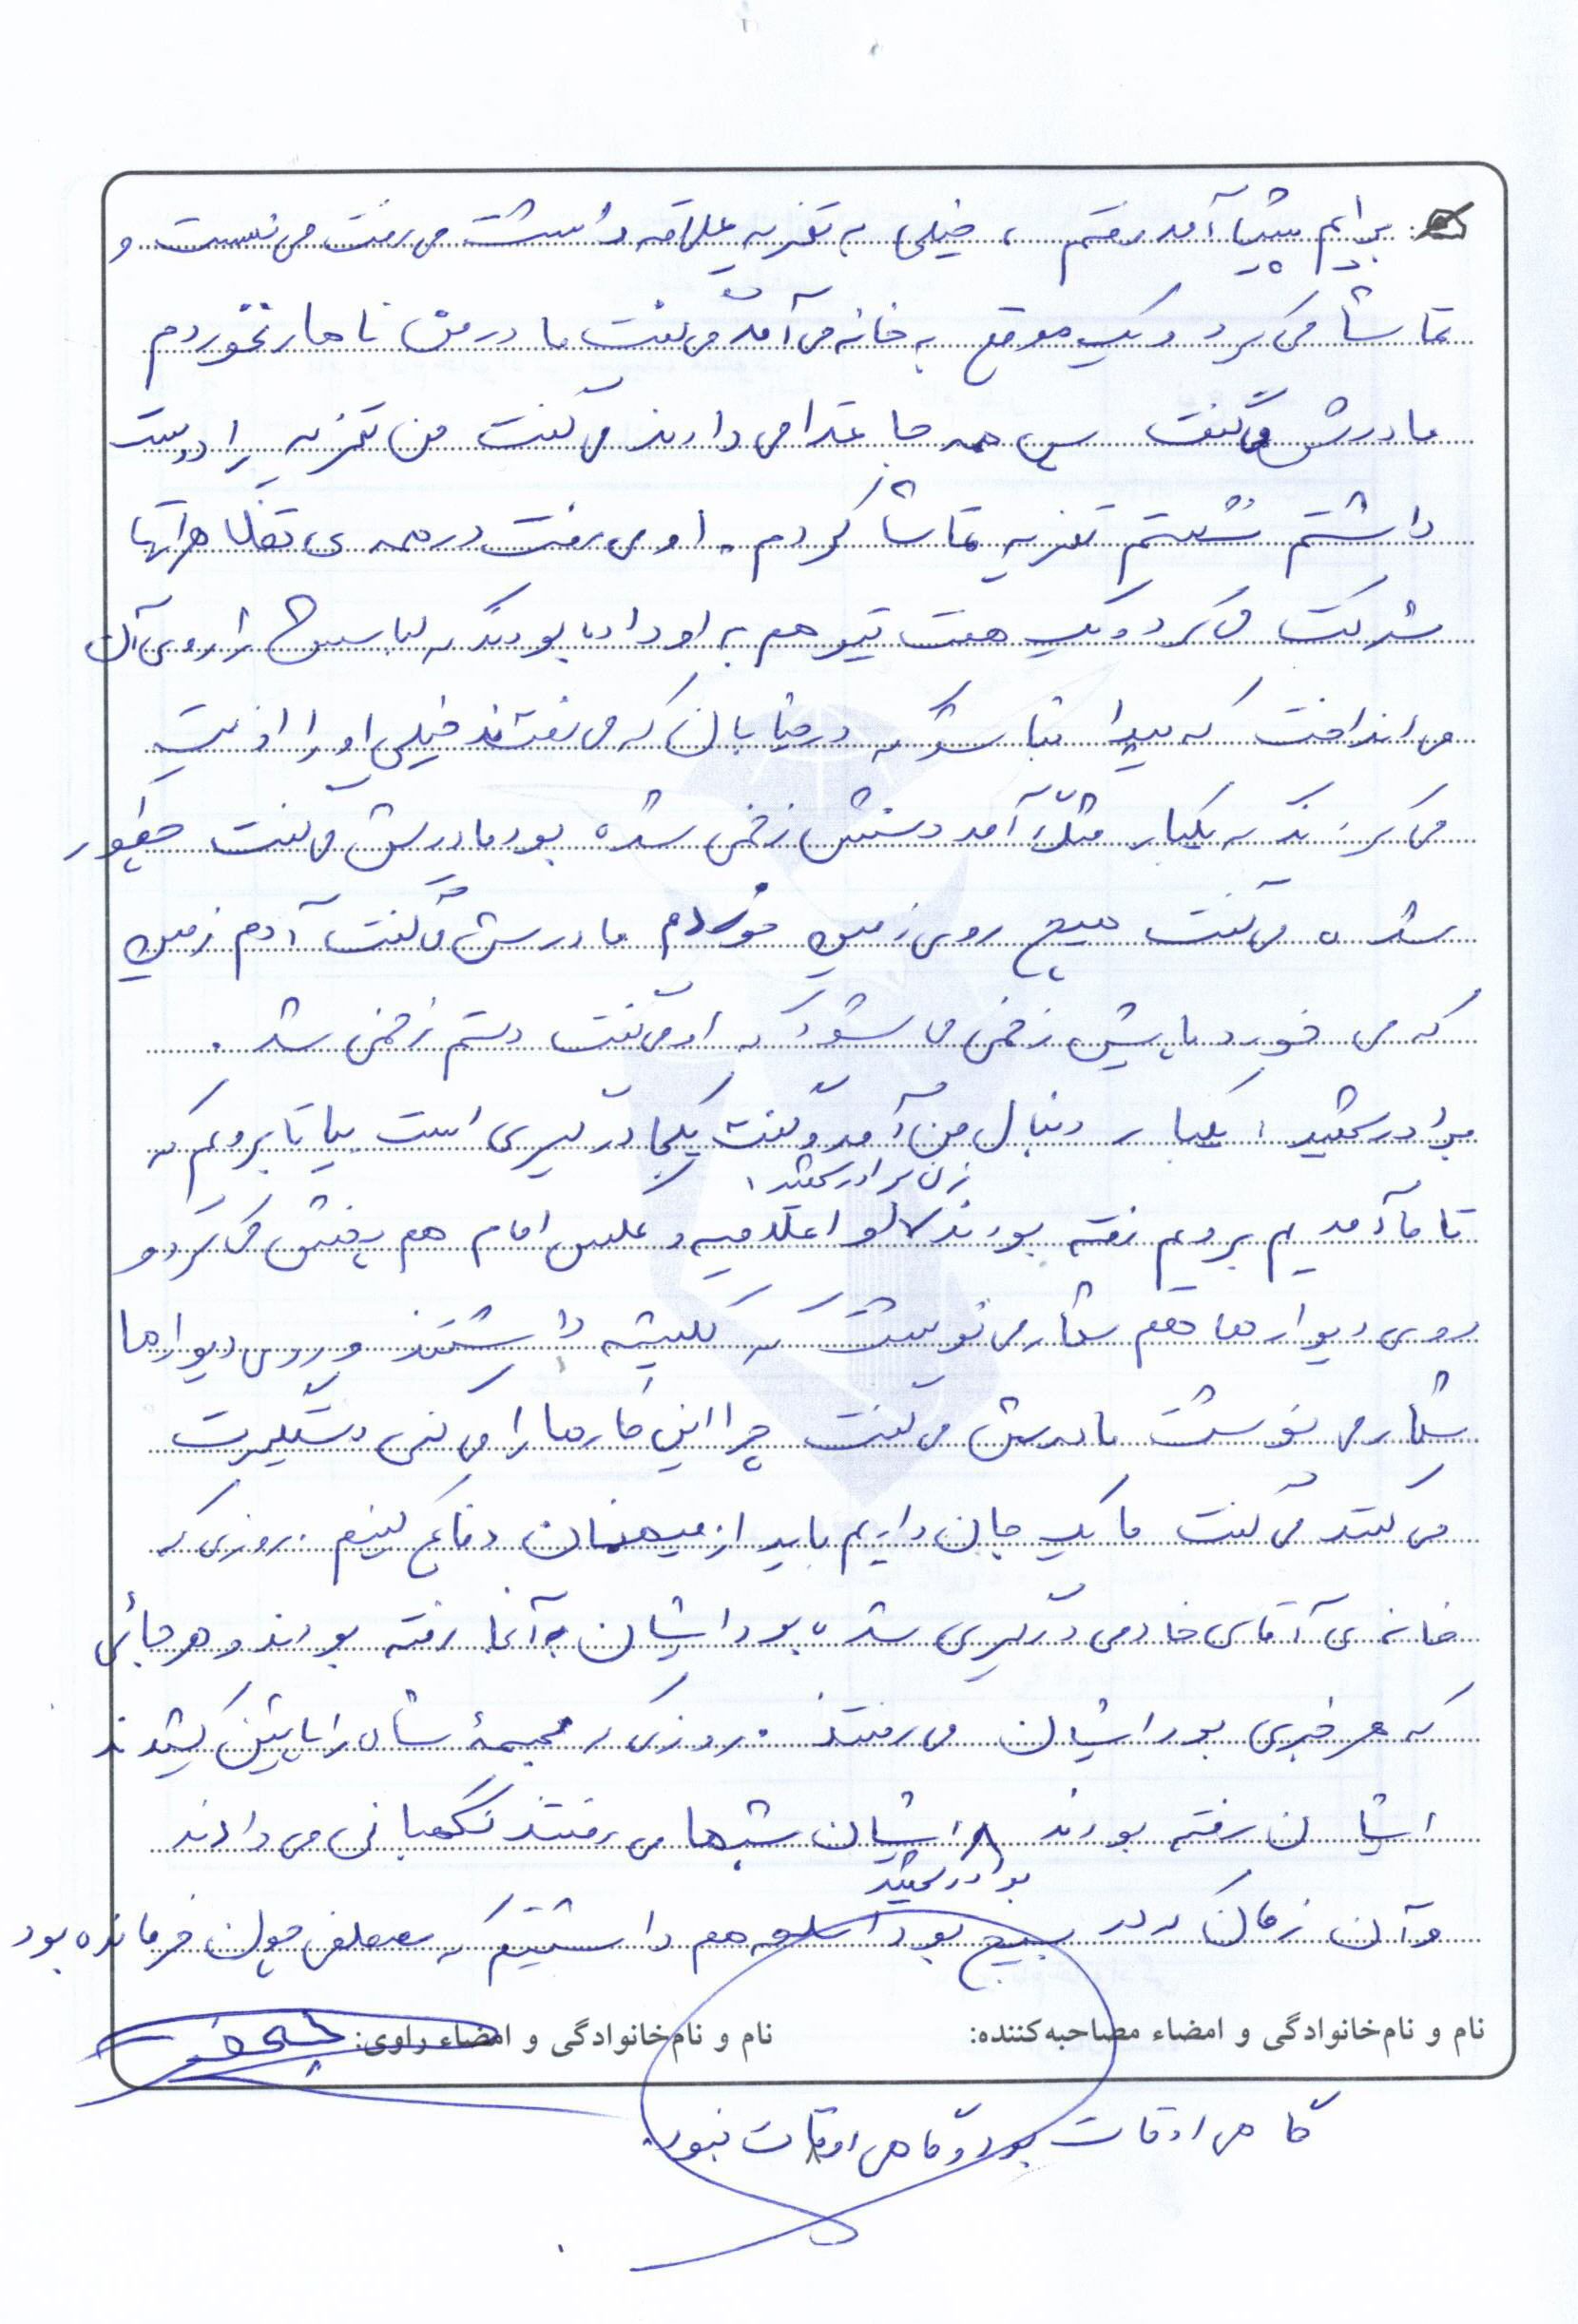 برایم پیش آمد رفتم ، خیلی به تعزیه علاقه داشت می رفت می نشست و
تماشا می کرد و یک موقع به خانه می آمد می گفت مادر من ناهار نخوردم
مادرش می گفت همه جا غذا می دارند می گفت من تعزیه را دوست
داشتم نشستم تعزیه تماشا کردم . او می رفت در همه ی تظاهراتها
شرکت می کرد و یک هفت تیر هم به او داده بودند که لباسش را روی آن
می انداخت که پیدا نباشد که در خیابان که می رفتند خیلی او را اذیت
می کردند که یکبار مثلاً آمد دستش زخمی شده بود مادرش می گفت چطور
شده می گفت هیچ روی زمین خوردم مادرش می گفت آدم زمین
که می خورد پایش زخمی می شود که او می گفت دستم زخمی شد .
برادر شهید : یکبار دنبال من آمد و گفت یکجا درگیری است بیا تا برویم که
زن برادر شهید :
تا ما آمدیم برویم رفته بودند او اعلامیه و عکس امام هم پخش می کرد و
روی دیوارها هم شعار می نوشت که کلیشه داشتند و روی دیوارها
شعار می نوشت مادرش می گفت چرا این کارها را می کنی دستگیرت
می کنند می گفت ما یک جان داریم باید از میهنمان دفاع کنیم . روزی که
خانه ی آقای خادمی درگیری شده بود ایشان به آنجا رفته بودند و هر جائی
که هر خبری بود ایشان می رفتند . روزی که مجسمهٔ شاه را پایین کشیدند
ایشان رفته بودند ایشان شبها می رفتند نگهبانی می دادند
برادر شهید
و آن زمان که در بسیج بود اسلحه هم داشتیم که مصطفی چون فرمانده بود
نام و نام‌خانوادگی و امضاء مصاحبه‌کننده: نام و نام‌خانوادگی و امضاء راوی:
گاهی اوقات بود و گاهی اوقات نبود.